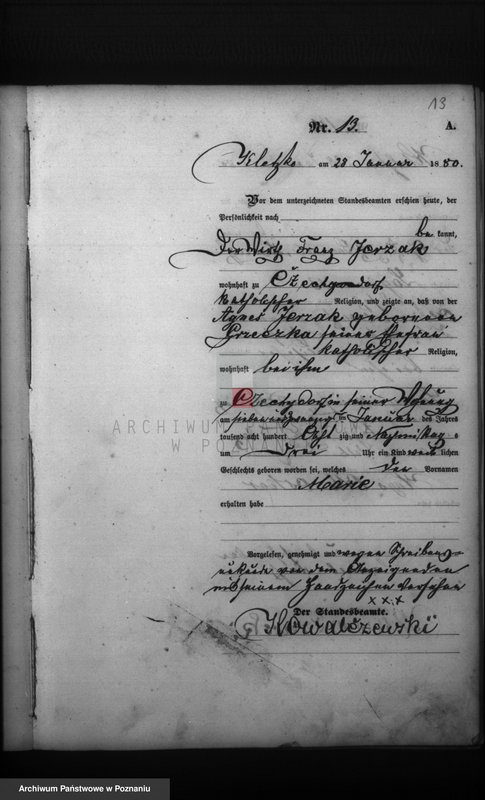 13
Nr. 13. A.
Kletzko am 28 Januar 1880.
Vor dem unterzeichneten Standesbeamten erschien heute, der
Persönlichkeit nach
be kannt,
der Wirth Franz Jerzak
wohnhaft zu Czechydorf
katholischer Religion, und zeigte an, daß von der
Agnes Jerzak geborenen
Grzeczka seiner Ehefrau
katholischer Religion,
wohnhaft bei ihm
zu Czechydorf in seiner Wohnung
am sieben und zwanzig ten Januar des Jahres
tausend acht hundert acht zig und Nachmittag s
um drei Uhr ein Kind weib lichen
Geschlechts geboren worden sei, welches den Vornamen
Marie
erhalten habe
Vorgelesen, genehmigt und wegen Schreibens-
unkunde von dem Anzeigenden
mit seinem Handzeichen versehen
x x x
Der Standesbeamte.
Kowalczewski
ARCHIWUM PAŃSTWOWE
W POZNANIU
Archiwum Państwowe w Poznaniu